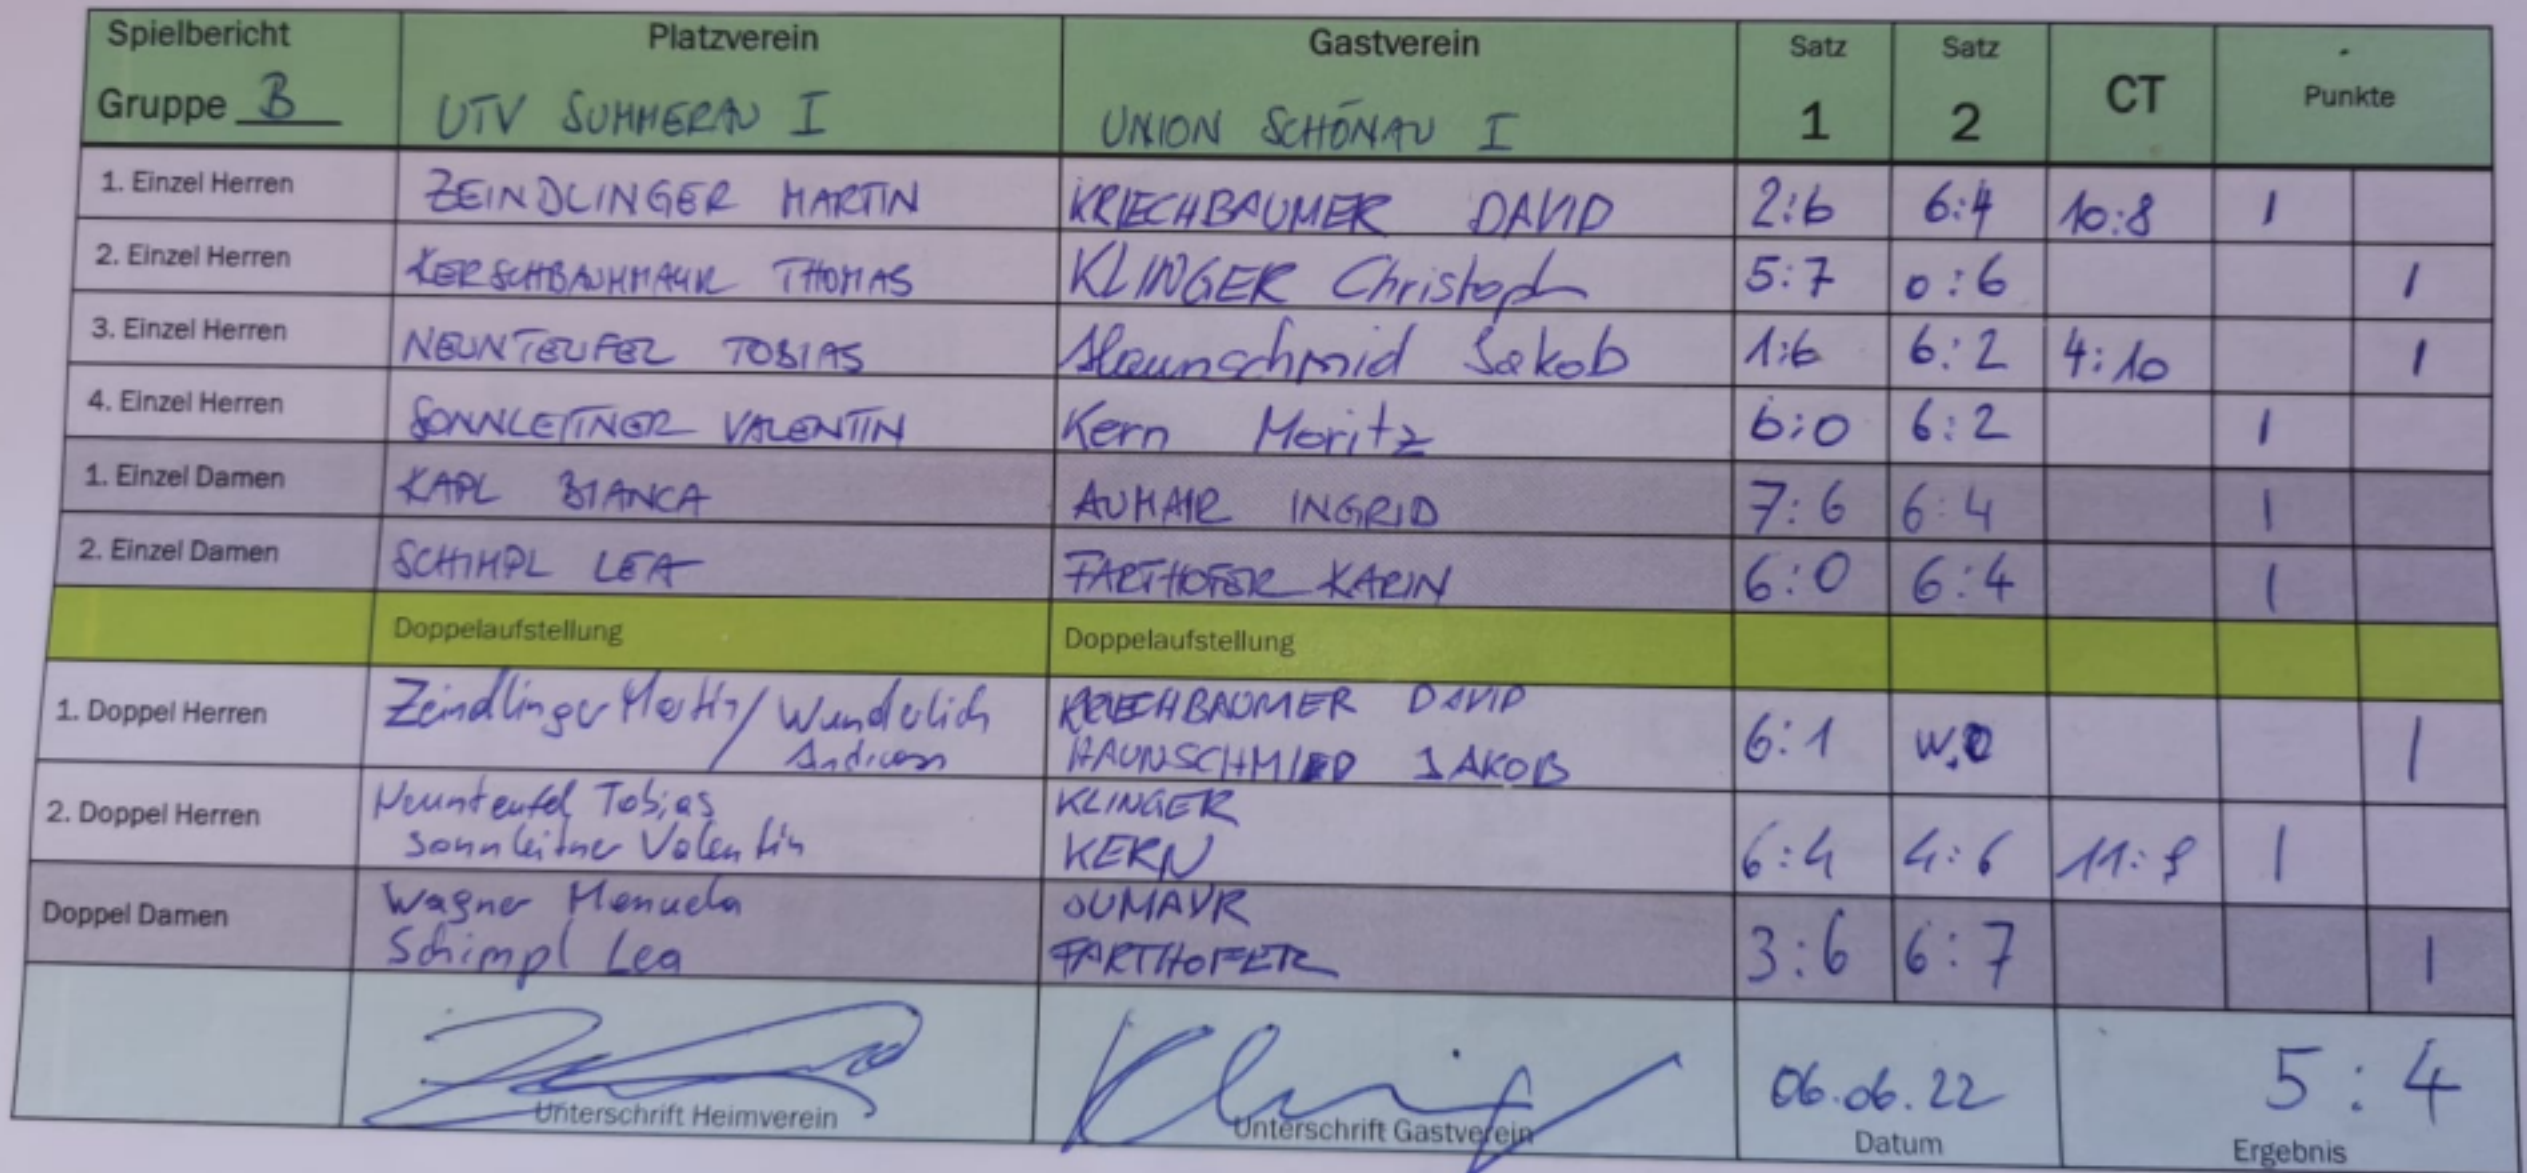 Spielbericht Platzverein Gastverein Satz Satz CT Punkte
Gruppe B UTV SUMMERAU I UNION SCHÖNAU I 1 2
1. Einzel Herren ZEINDLINGER MARTIN KRIECHBAUMER DAVID 2:6 6:4 10:8 1
2. Einzel Herren KERSCHBAUMMAYR THOMAS KLINGER Christoph 5:7 0:6 1
3. Einzel Herren NEUNTEUFEL TOBIAS Haunschmid Jakob 1:6 6:2 4:10 1
4. Einzel Herren SONNLEITNER VALENTIN Kern Moritz 6:0 6:2 1
1. Einzel Damen KAPL BIANCA AUMAIR INGRID 7:6 6:4 1
2. Einzel Damen SCHIMPL LEA FARTHOFER KARIN 6:0 6:4 1
Doppelaufstellung Doppelaufstellung
1. Doppel Herren Zeindlinger Martin / Wunderlich KRIECHBAUMER DAVID 6:1 W.O 1
Andreas HAUNSCHMIED JAKOB
2. Doppel Herren Neunteufel Tobias KLINGER
Sonnleitner Valentin KERN 6:4 4:6 11:9 1
Doppel Damen Wagner Manuela AUMAYR
Schimpl Lea FARTHOFER 3:6 6:7 1
06.06.22 5:4
Unterschrift Heimverein Unterschrift Gastverein Datum Ergebnis